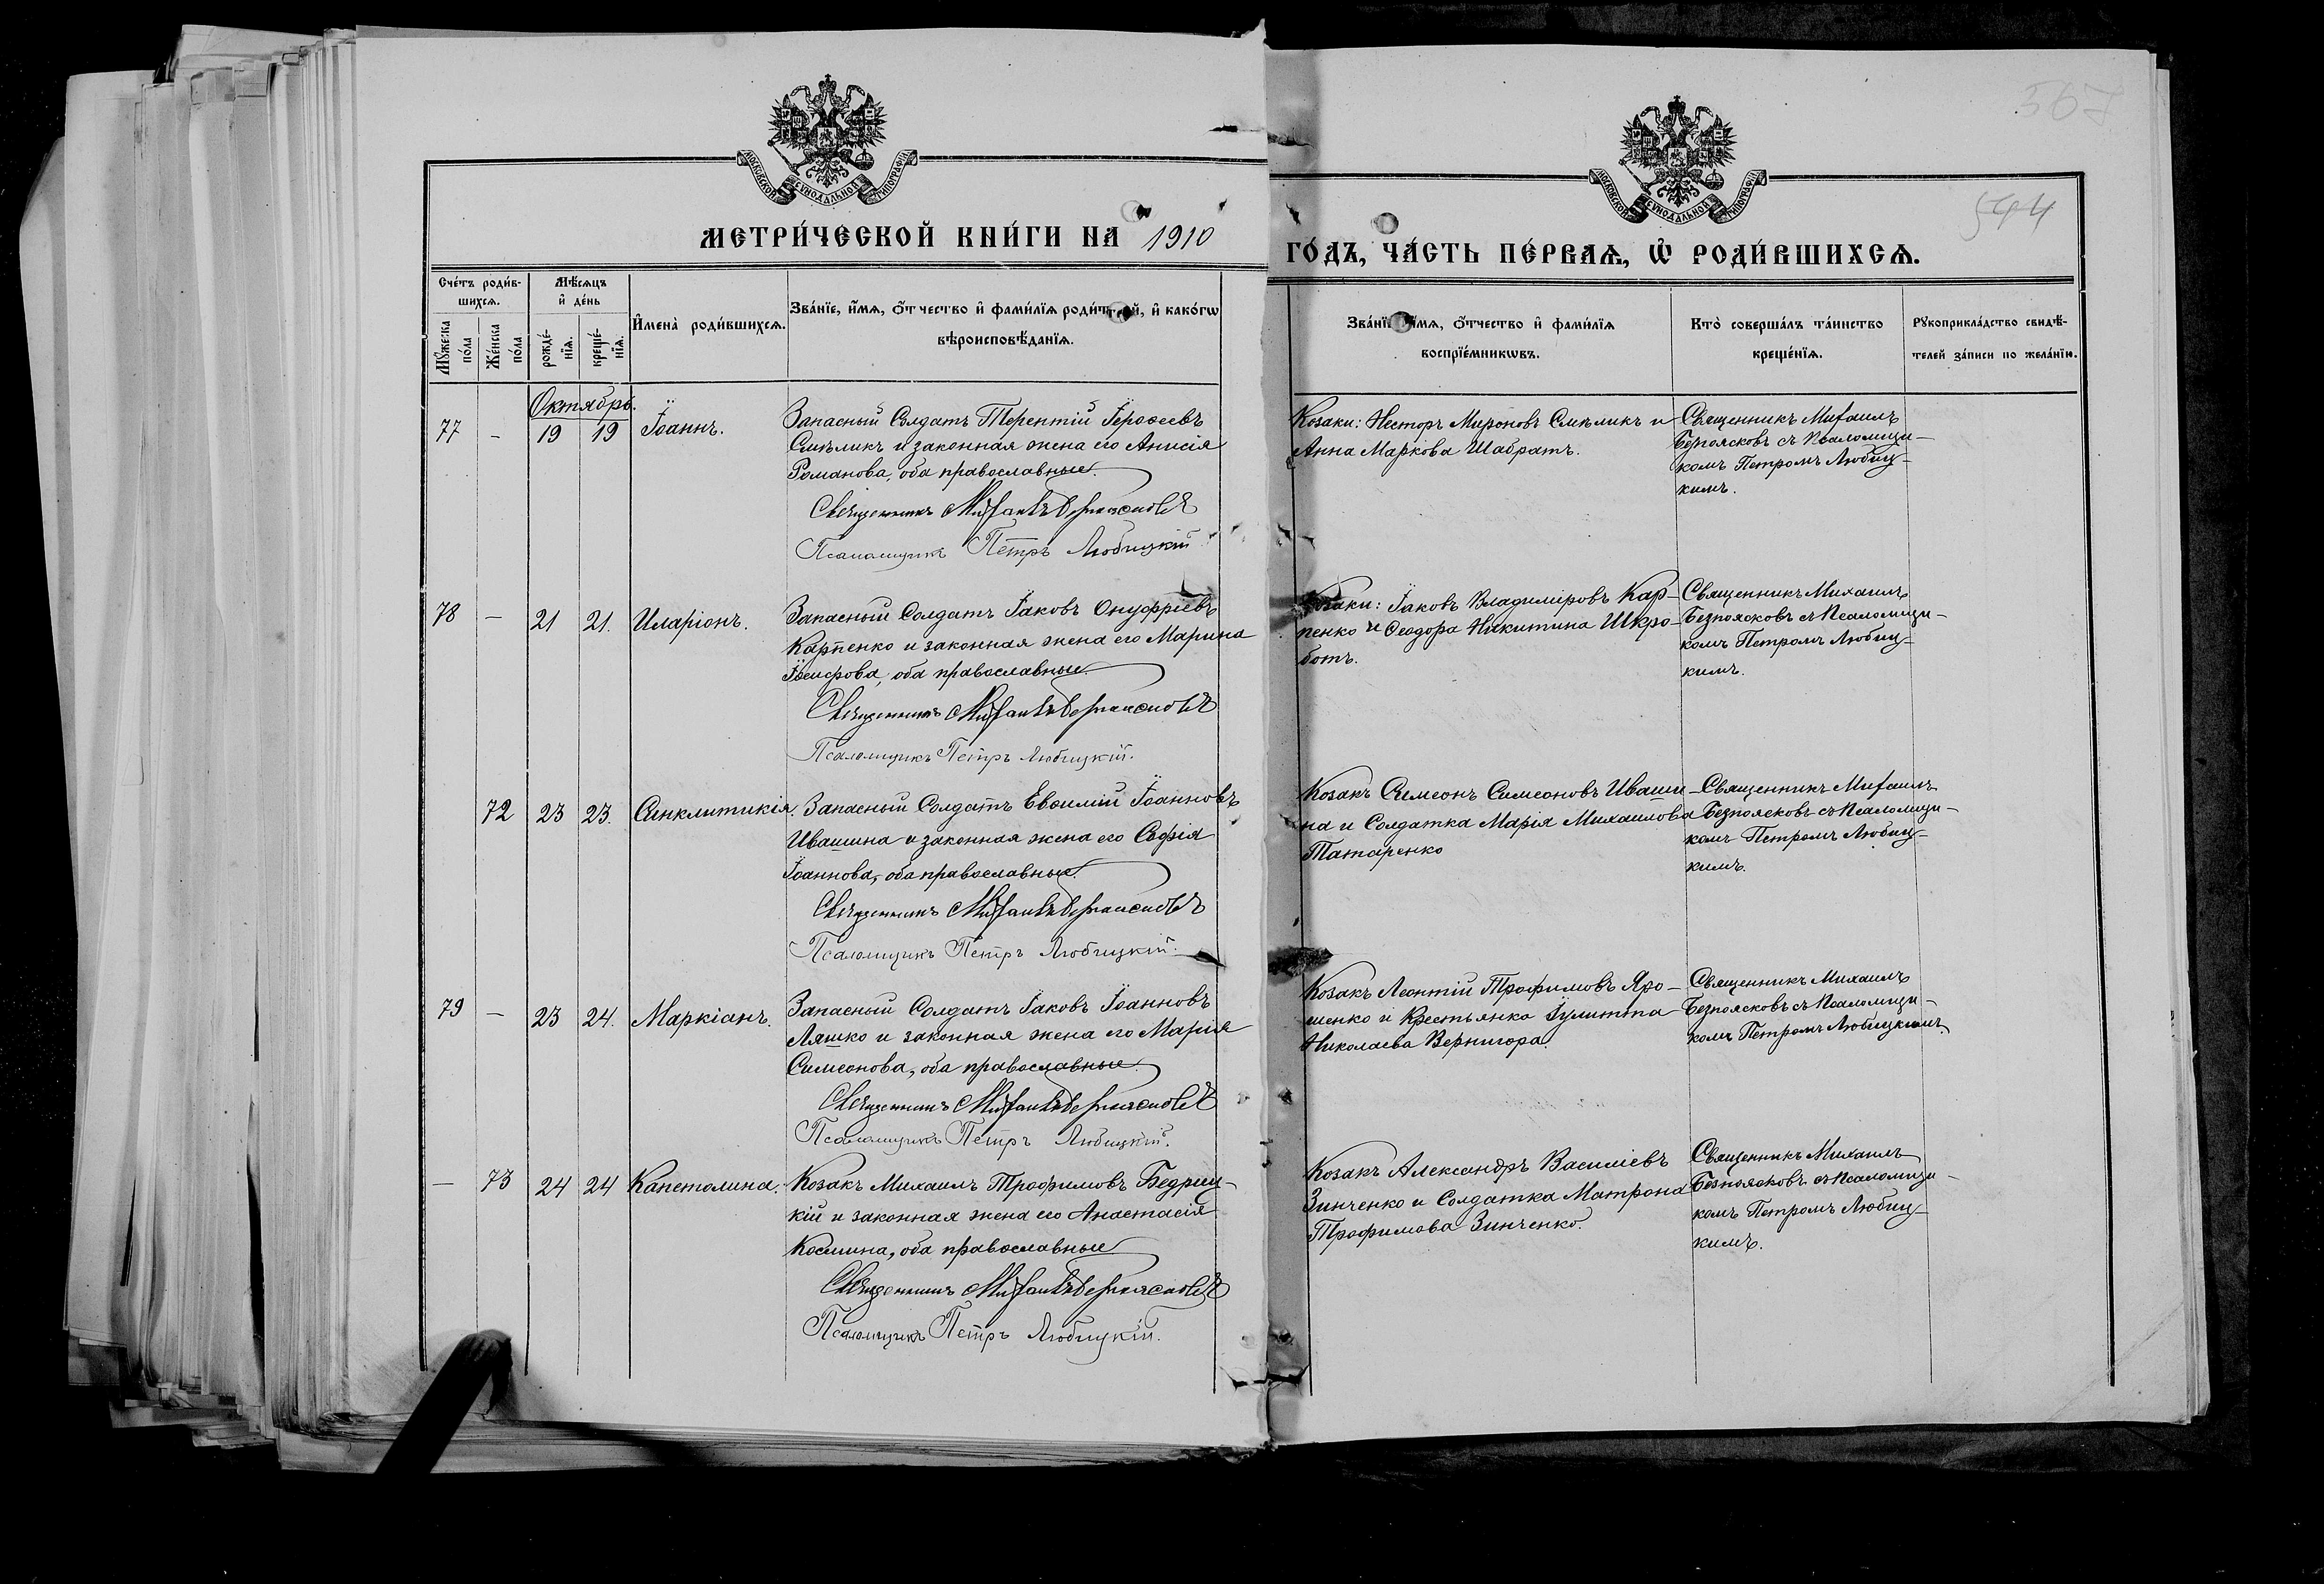 567
544
МОСКОВСКОЙ СѴНОДАЛЬНОЙ ТИПОГРАФІИ
МОСКОВСКОЙ СѴНОДАЛЬНОЙ ТИПОГРАФІИ
МЕТРИ́ЧЕСКОЙ КНИ́ГИ НА 1910
ГО́ДЪ, ЧА́СТЬ ПЕ́РВАѦ, Ѡ РОДИ́ВШИХСѦ.
Сче́тъ роди́в-
шихсѧ.
Мѣ́сѧцъ
и҆ де́нь
Мꙋ́жеска
по́ла
Же́нска
по́ла
рожде́-
нїѧ.
креще́-
нїѧ.
И҆мена̀ роди́вшихсѧ.
Зва́нїе, и҆́мѧ, ѻ҆́тчество и҆ фами́лїѧ роди́телей, и҆ како́гѡ
вѣроисповѣ́данїѧ.
Зва́нїе, и҆́мѧ, ѻ҆́тчество и҆ фами́лїѧ
воспрїе́мникѡвъ.
Кто̀ соверша́лъ та́инство
креще́нїѧ.
Рꙋкоприкла́дство свидѣ́-
телей за́писи по жела́нїю.
Октябрь.
77 - 19 19 Іоаннъ.
Запасный Солдатъ Терентій Іероѳеевъ
Смѣликъ и законная жена его Анисія
Романова, оба православные.
Священникъ Михаилъ Безпоясковъ
Псаломщикъ Петръ Любицкій
Козаки: Несторъ Мироновъ Смѣликъ и
Анна Маркова Шабратъ.
Священникъ Михаилъ
Безпоясковъ съ Псаломщи-
комъ Петромъ Любиц-
кимъ.
78 - 21 21. Иларіонъ.
Запасный Солдатъ Іаковъ Онуфріевъ
Карпенко и законная жена его Марина
Іосифова, оба православные.
Священникъ Михаилъ Безпоясковъ
Псаломщикъ Петръ Любицкій.
Козаки: Іаковъ Владиміровъ Кар-
пенко и Ѳеодора Никитина Шкро-
ботъ.
Священникъ Михаилъ
Безпоясковъ съ Псаломщи-
комъ Петромъ Любиц-
кимъ.
72 23 23. Синклитикія.
Запасный Солдатъ Евѳимій Іоанновъ
Ивашина и законная жена его Софія
Іоаннова, оба православные.
Священникъ Михаилъ Безпоясковъ
Псаломщикъ Петръ Любицкій.
Козакъ Симеонъ Симеоновъ Иваши-
на и Солдатка Марія Михаилова
Татаренко
Священникъ Михаилъ
Безпоясковъ съ Псаломщи-
комъ Петромъ Любиц-
кимъ.
79 - 23 24. Маркіанъ.
Запасный Солдатъ Іаковъ Іоанновъ
Ляшко и законная жена его Марія
Симеонова, оба православные.
Священникъ Михаилъ Безпоясковъ
Псаломщикъ Петръ Любицкій.
Козакъ Леонтій Трофимовъ Яро-
шенко и Крестьянка Іулитта
Николаева Вернигора.
Священникъ Михаилъ
Безпоясковъ съ Псаломщи-
комъ Петромъ Любицкимъ.
- 73 24 24 Капетолина.
Козакъ Михаилъ Трофимовъ Бедриц-
кій и законная жена его Анастасія
Космина, оба православные
Священникъ Михаилъ Безпоясковъ
Псаломщикъ Петръ Любицкій.
Козакъ Александръ Василіевъ
Зинченко и Солдатка Матрона
Трофимова Зинченко.
Священникъ Михаилъ
Безпоясковъ съ Псаломщи-
комъ Петромъ Любиц-
кимъ.